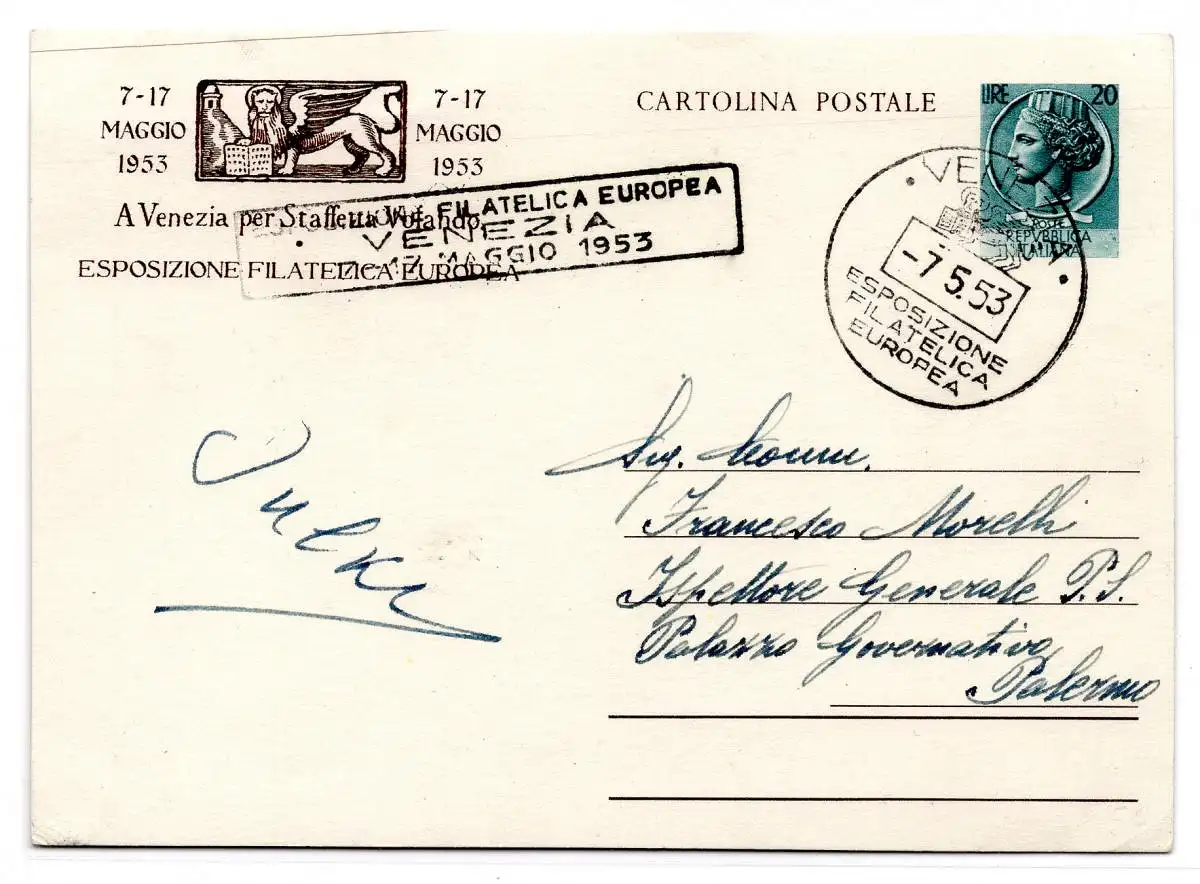 7-17
MAGGIO
1953
7-17
MAGGIO
1953
A Venezia per Staffetta Volando
ESPOSIZIONE FILATELICA EUROPEA
FILATELICA EUROPEA
VENEZIA
MAGGIO 1953
CARTOLINA POSTALE
LIRE 20
POSTE
REPVBBLICA
ITALIANA
-7 5.53
ESPOSIZIONE
FILATELICA
EUROPEA
Sig.
Francesco Morelli
Ispettore Generale P.S.
Palazzo Governativo
Palermo